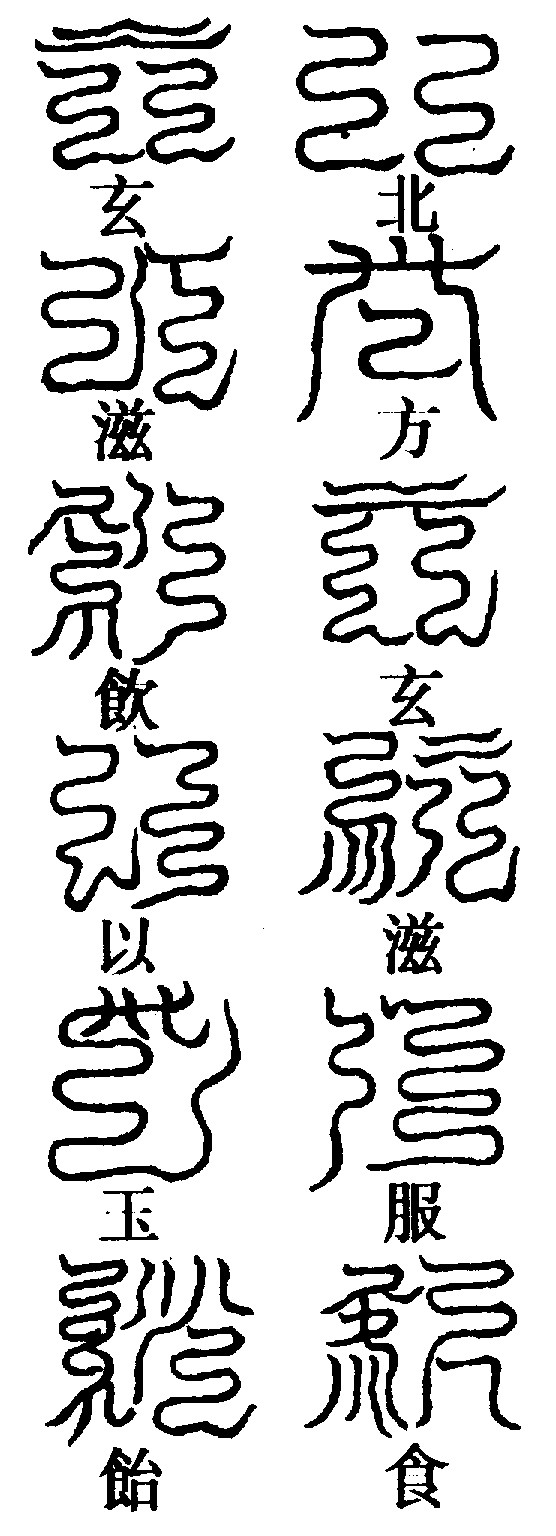 北方玄滋服食
玄滋飲以玉飴